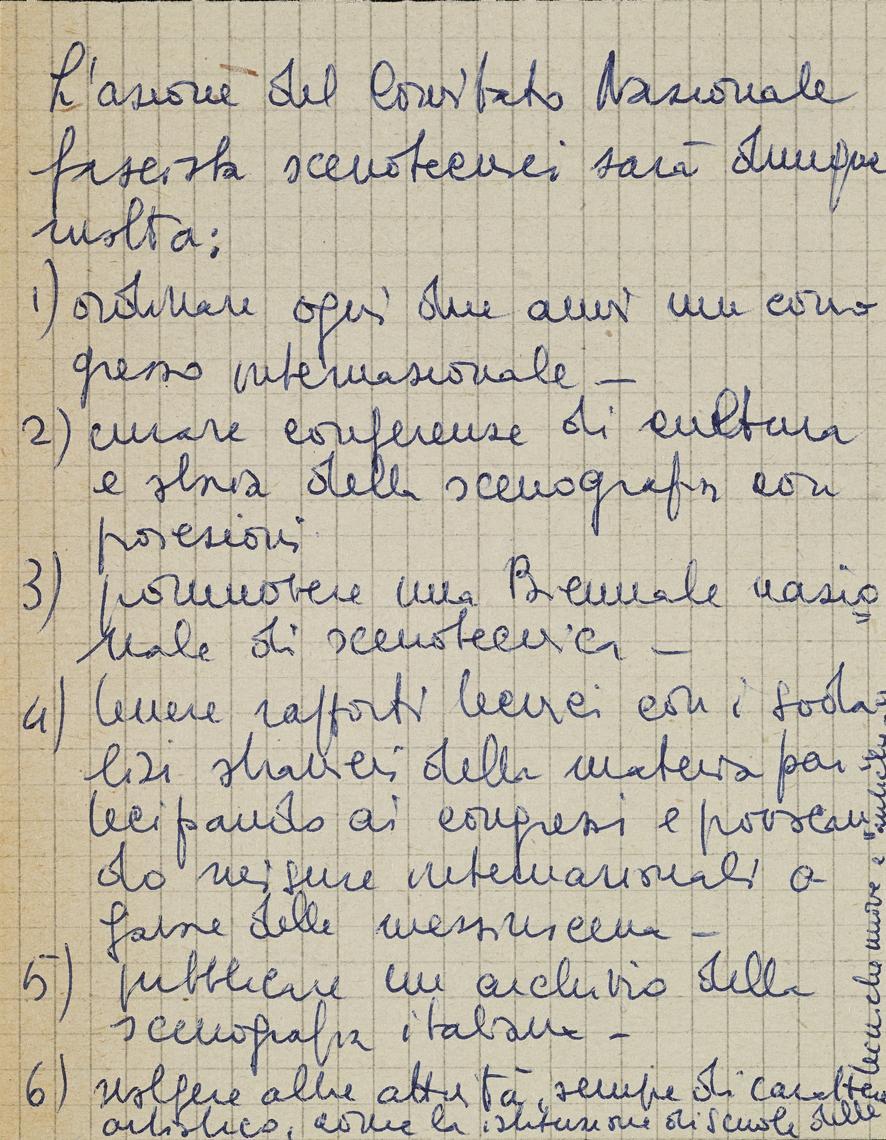 L'azione del Comitato Nazionale
fascista scenotecnici sarà dunque
rivolta:
1) ordinare ogni due anni un con-
gresso internazionale —
2) curare conferenze di cultura
e storia della scenografia con
proiezioni
3) promuovere una Biennale nazio
nale di scenotecnica —
4) tenere rapporti tecnici con i soda-
lizi stranieri della materia par-
tecipando ai congressi e provocan
do internazionali a
favore della messinscena —
5) pubblicare un archivio della
scenografia italiana —
6) svolgere altre attività, sempre di caratte
artistico, come la istituzione di scuole delle
tecniche nuove e antiche